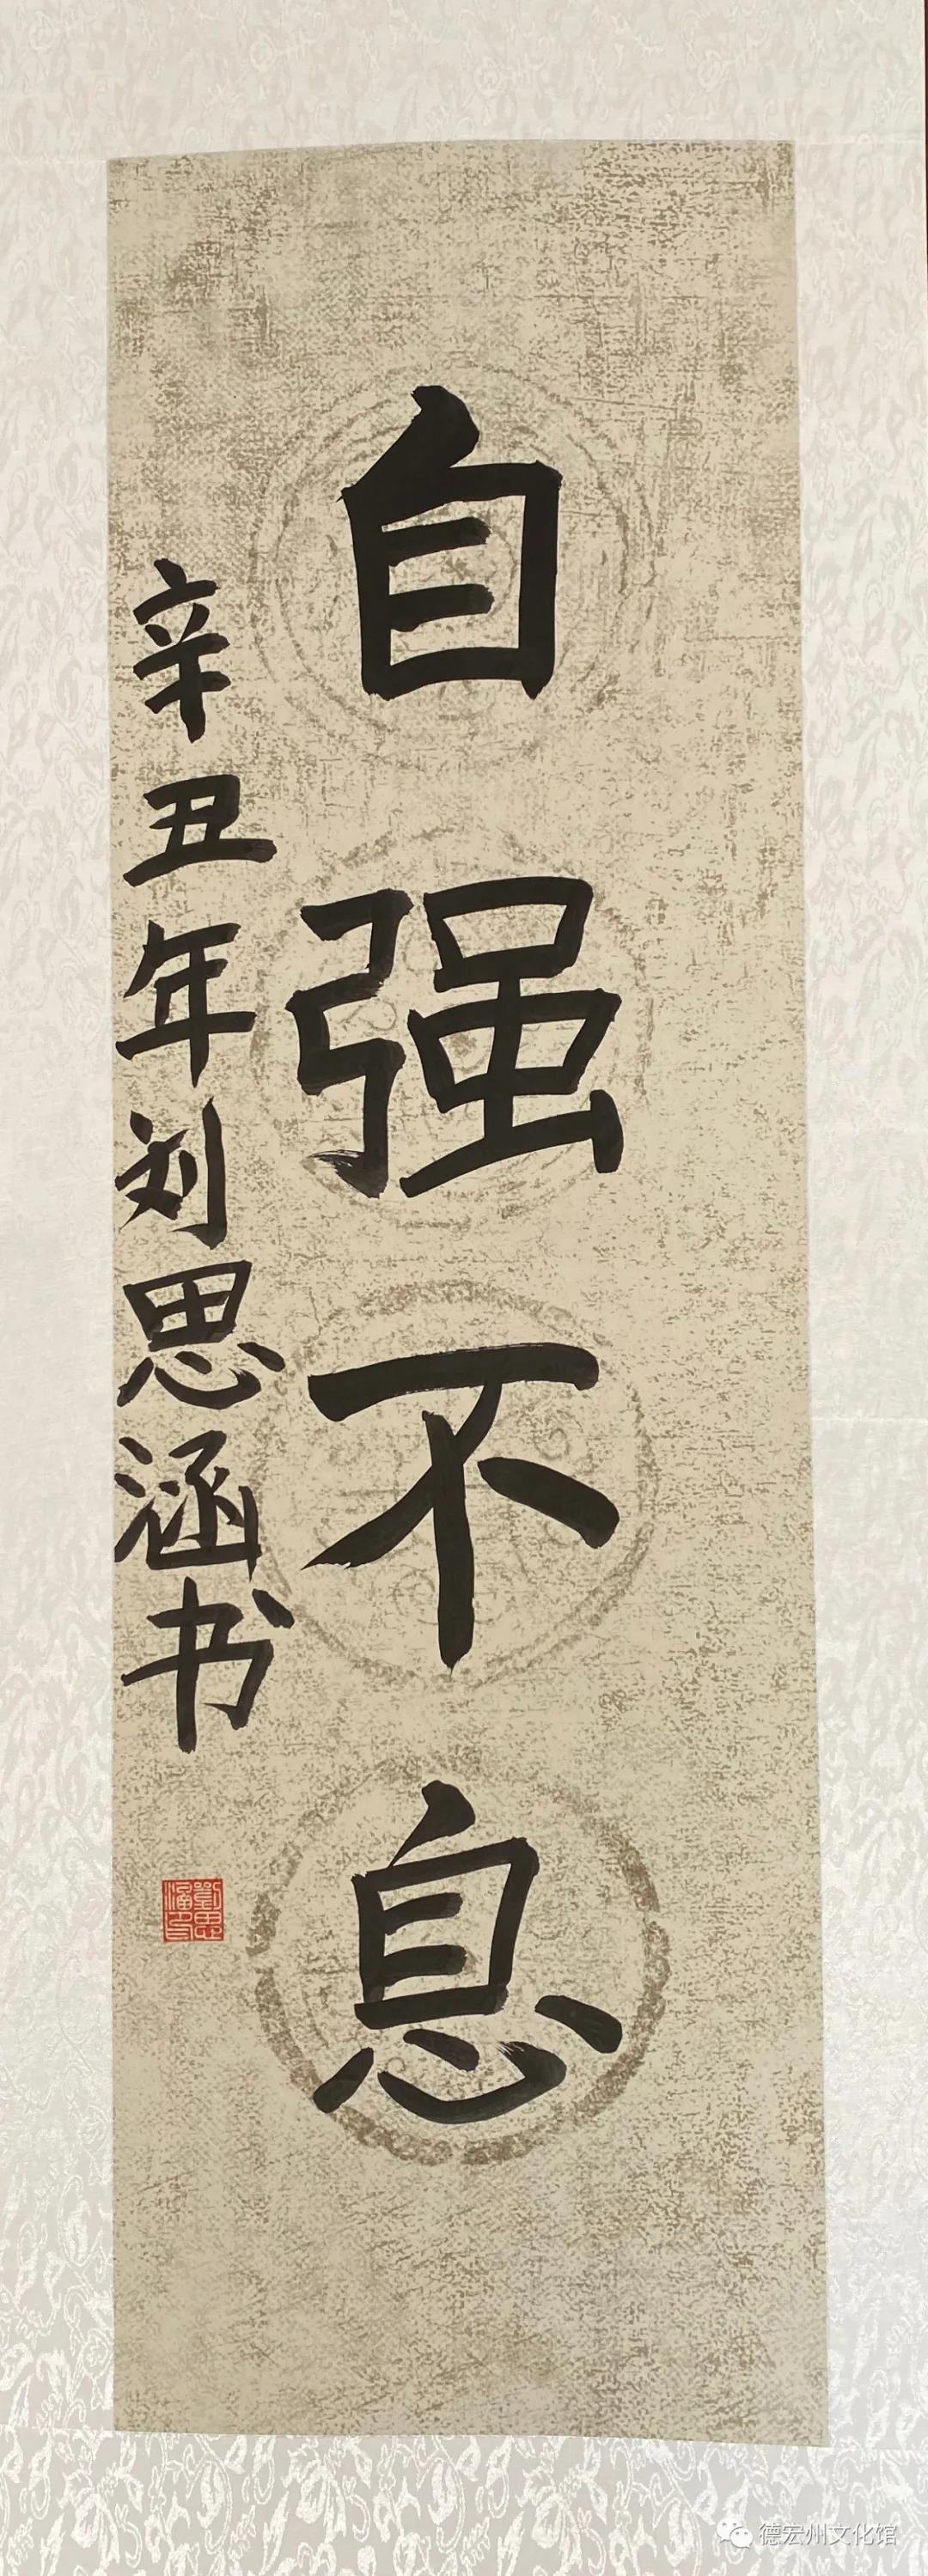 自强不息
辛丑年刘思涵书
劉思涵印
德宏州文化馆